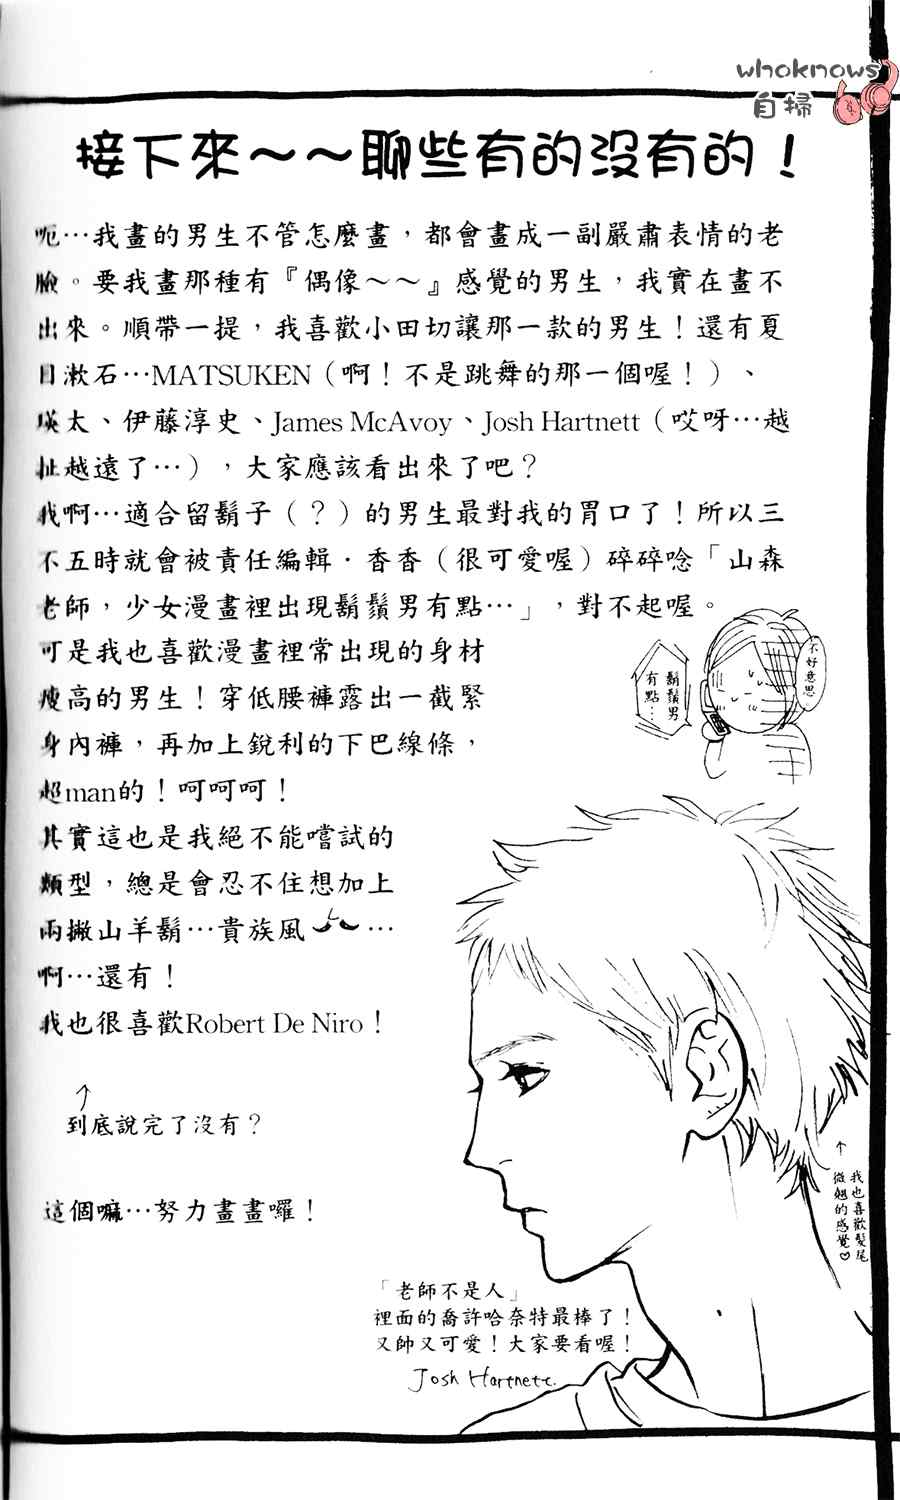 whoknows
自掃
接下來～～聊些有的沒有的！
呃…我畫的男生不管怎麼畫，都會畫成一副嚴肅表情的老
臉。要我畫那種有『偶像～～』感覺的男生，我實在畫不
出來。順帶一提，我喜歡小田切讓那一款的男生！還有夏
目漱石…MATSUKEN（啊！不是跳舞的那一個喔！）、
瑛太、伊藤淳史、James McAvoy、Josh Hartnett（哎呀…越
扯越遠了…），大家應該看出來了吧？
我啊…適合留鬍子（？）的男生最對我的胃口了！所以三
不五時就會被責任編輯．香香（很可愛喔）碎碎唸「山森
老師，少女漫畫裡出現鬍鬚男有點…」，對不起喔。
可是我也喜歡漫畫裡常出現的身材
瘦高的男生！穿低腰褲露出一截緊
身內褲，再加上銳利的下巴線條，
超man的！呵呵呵！
其實這也是我絕不能嚐試的
類型，總是會忍不住想加上
兩撇山羊鬍…貴族風…
啊…還有！
我也很喜歡Robert De Niro！
↑
到底說完了沒有？
這個嘛…努力畫畫囉！
鬍鬚男
有點…
不好意思
↑
我也喜歡髮尾
微翹的感覺♡
「老師不是人」
裡面的喬許哈奈特最棒了！
又帥又可愛！大家要看喔！
Josh Hartnett.